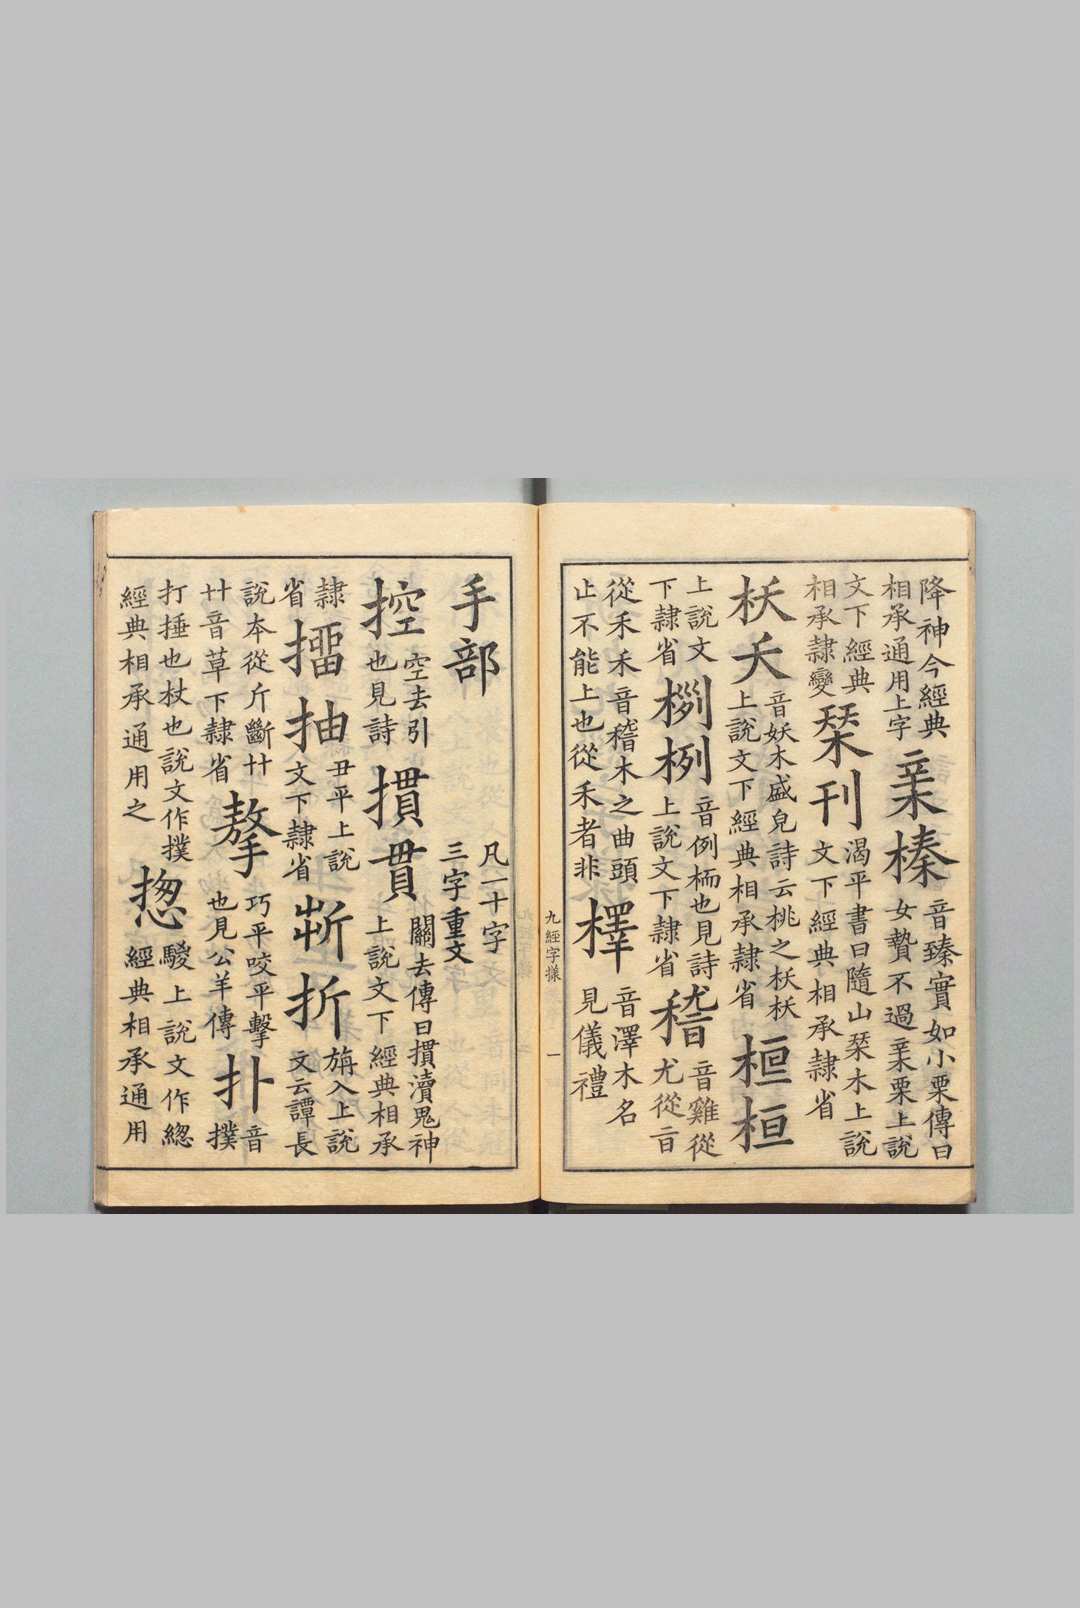 降神今經典
相承通用上字
亲榛
音臻實如小栗傳曰
女贄不過亲栗上說
文下經典
相承隸變
栞刊
渴平書曰隨山栞木上說
文下經典相承隸省
枖夭
音妖木盛皃詩云桃之枖枖
上說文下經典相承隸省
桓桓
上說文
下隸省
栵
音例栭也見詩
上說文下隸省
𥡴
音雞從
尤從㫖
從禾禾音稽木之曲頭
止不能上也從禾者非
檡
音澤木名
見儀禮
九經字㨾
一
手部
凡一十字
三字重文
控
空去引
也見詩
摜貫
關去傳曰摜瀆鬼神
上說文下經典相承
隸
省
㩅抽
丑平上說
文下隸省
折
旃入上說
文云譚長
說夲從斤斷艸
艸音草下隸省
摮
巧平咬平擊
也見公羊傳
扑
音
撲
打捶也杖也說文作撲
經典相承通用之
揔
騣上說文作緫
經典相承通用